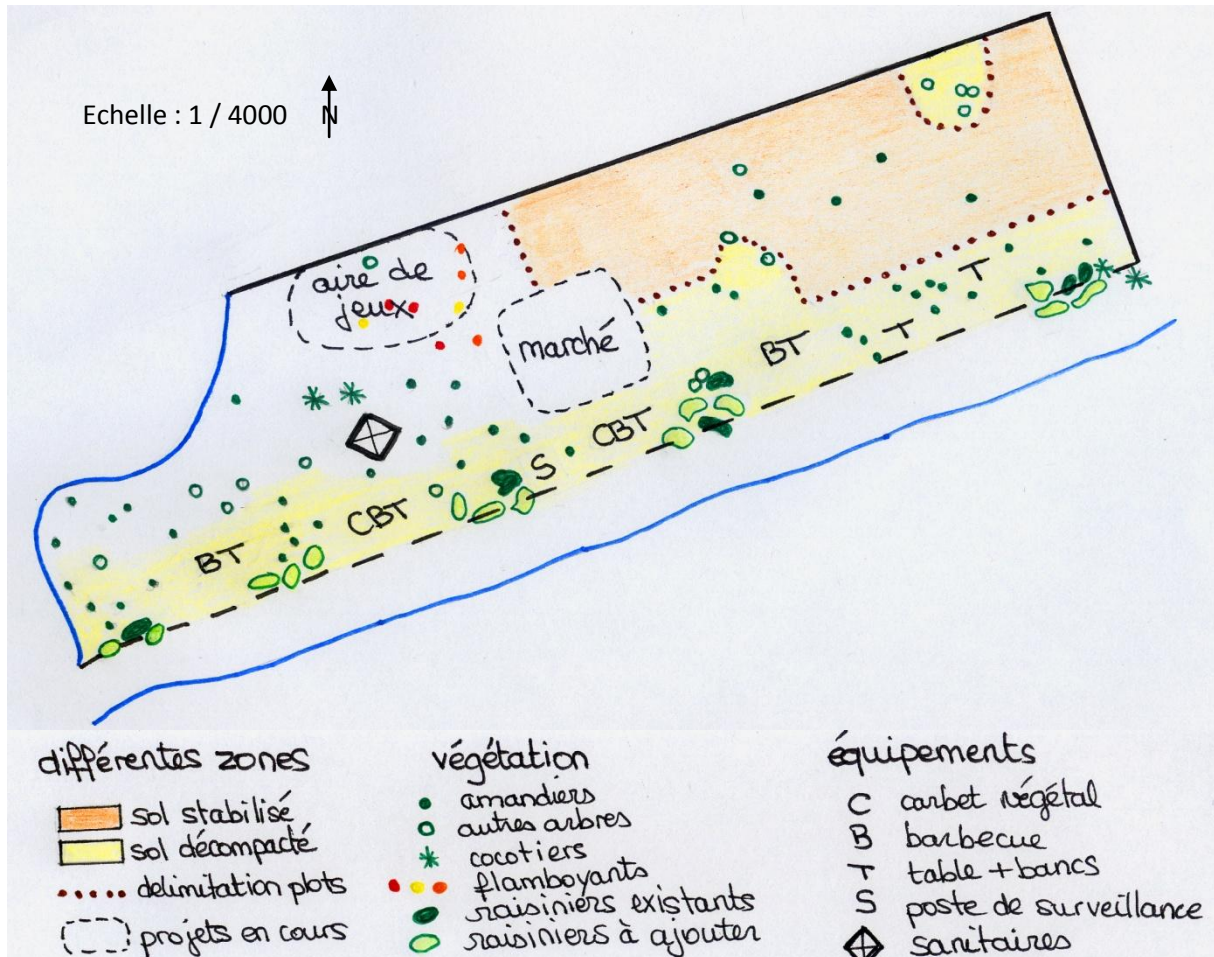 Echelle : 1 / 4000 N
aire de
jeux
marché
T
BT
T
CBT
S
CBT
BT
différentes zones
sol stabilisé
sol décompacté
délimitation plots
projets en cours
végétation
amandiers
autres arbres
cocotiers
flamboyants
raisiniers existants
raisiniers à ajouter
équipements
C carbet végétal
B barbecue
T table + bancs
S poste de surveillance
sanitaires